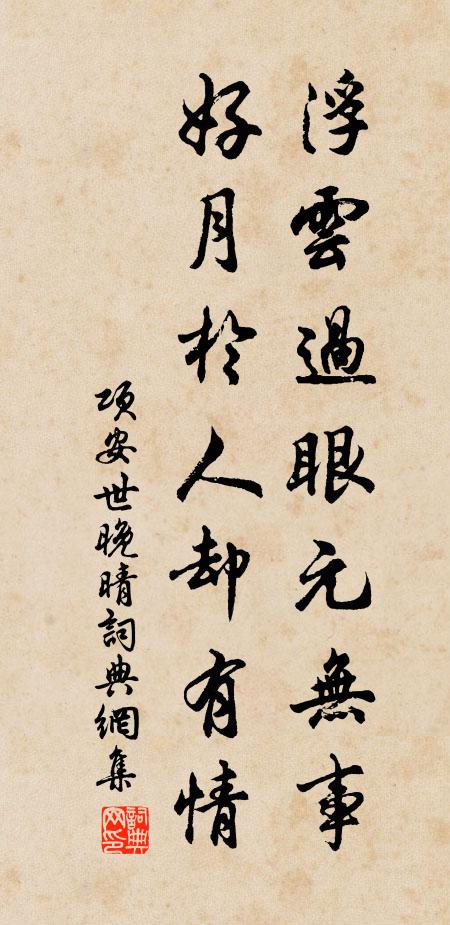 浮雲過眼元無事
好月於人却有情
項安世晚晴詞典網集
詞典網印